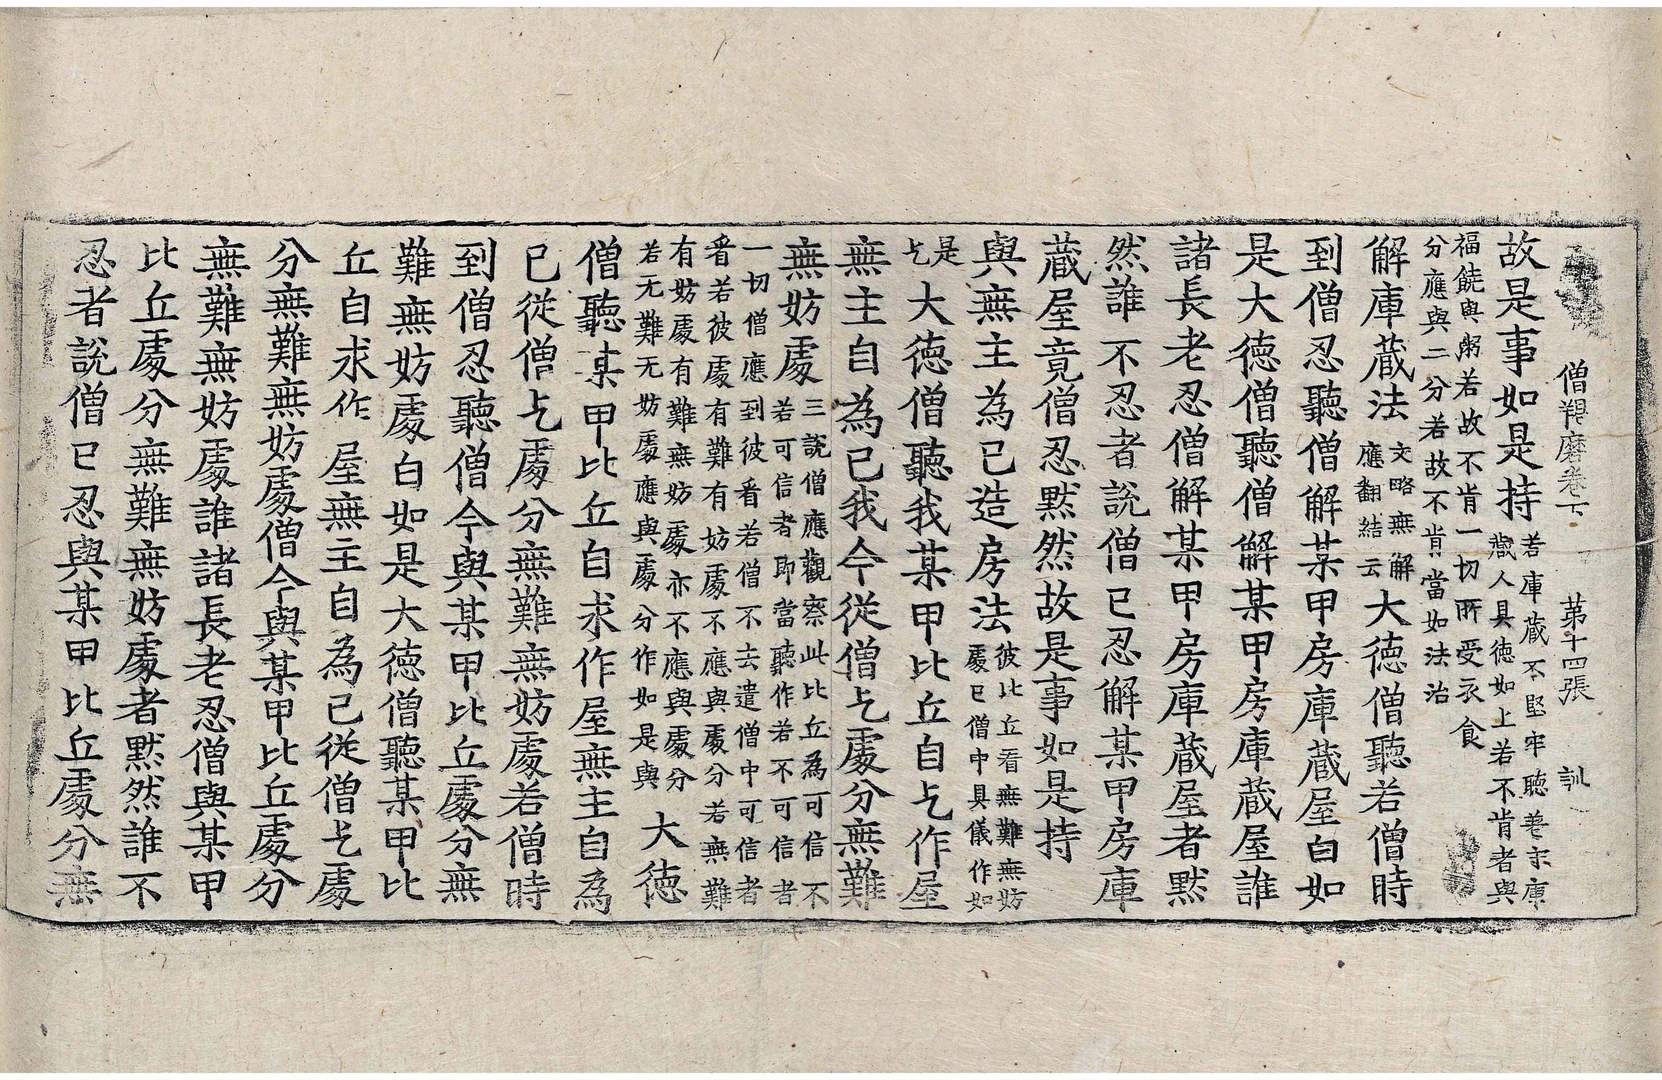 僧羯磨卷下 第十四張 訓
故是事如是持若庫藏不堅牢聽差守庫
藏人具徳如上若不肯者與
福饒與粥若故不肯一切所受衣食
分應與二分若故不肯當如法治
解庫蔵法文略無解
應翻結云大徳僧聽若僧時
到僧忍聽僧解某甲房庫蔵屋白如
是大徳僧聽僧解某甲房庫蔵屋誰
諸長老忍僧解某甲房庫蔵屋者黙
然誰不忍者說僧已忍解某甲房庫
蔵屋竟僧忍黙然故是事如是持
與無主為己造房法彼比丘看無難無妨
處已僧中具儀作如
是
乞大徳僧聽我某甲比丘自乞作屋
無主自為己我今従僧乞處分無難
無妨處三說僧應觀察此比丘為可信不
若可信者即當聽作若不可信者
一切僧應到彼看若僧不去遣僧中可信者
看若彼處有難有妨處不應與處分若無難
有妨處有難無妨處亦不應與處分
若无難无妨處應與處分作如是與大徳
僧聽某甲比丘自求作屋無主自為
已従僧乞處分無難無妨處若僧時
到僧忍聽僧今與某甲比丘處分無
難無妨處白如是大徳僧聽某甲比
丘自求作屋無主自為己従僧乞處
分無難無妨處僧今與某甲比丘處分
無難無妨處誰諸長老忍僧與某甲
比丘處分無難無妨處者黙然誰不
忍者說僧已忍與某甲比丘處分無